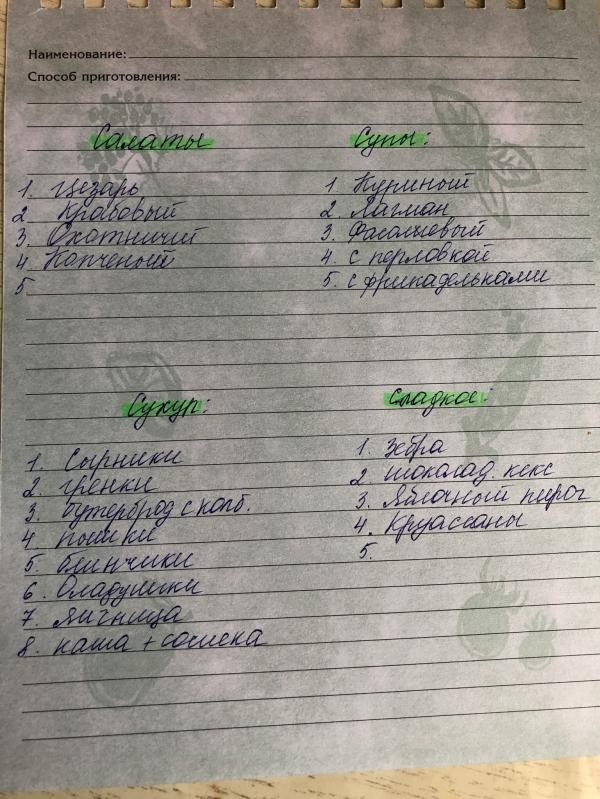 Наименование:
Способ приготовления:
Салаты
1. Цезарь
2 Крабовый
3. Охотничий
4 Копченый
5
Супы:
1. Куриный
2. Лагман
3. Фасолиевый
4. с перловкой
5. с фрикадельками
Сухур:
1. Сырники
2. гренки
3. бутерброд с колб.
4 пошки
5. блинчики
6. Оладушки
7. яичница
8. каша + сосиска
Сладкое:
1. Зебра
2 шоколад. кекс
3. Яблочный пирог
4. Круассаны
5.